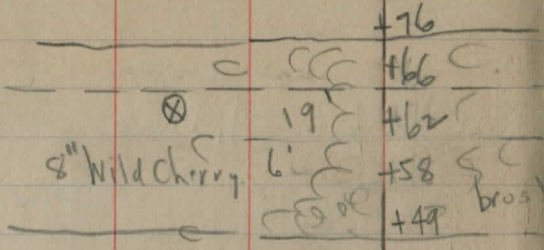 +76
+66
⊗ 19' +62
8" Wild Cherry 6' +58
brosh
+49